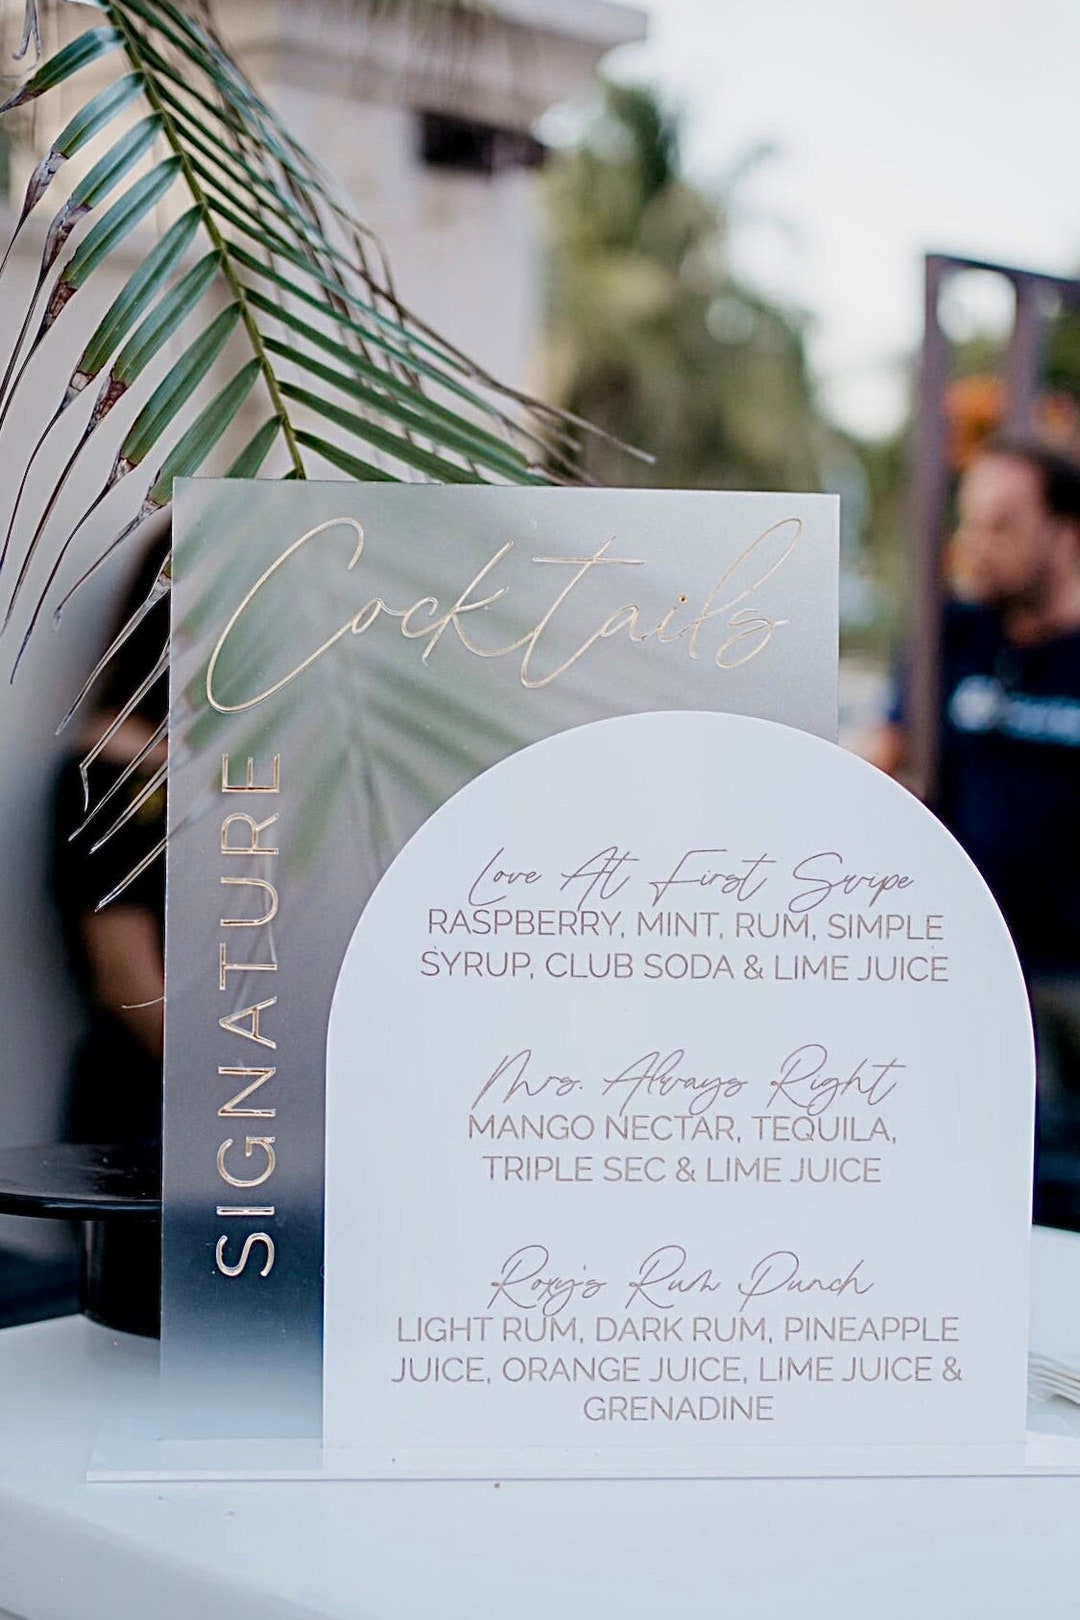 Cocktails
SIGNATURE
Love At First Swipe
RASPBERRY, MINT, RUM, SIMPLE
SYRUP, CLUB SODA & LIME JUICE
Mrs. Always Right
MANGO NECTAR, TEQUILA,
TRIPLE SEC & LIME JUICE
Roxy's Rum Punch
LIGHT RUM, DARK RUM, PINEAPPLE
JUICE, ORANGE JUICE, LIME JUICE &
GRENADINE